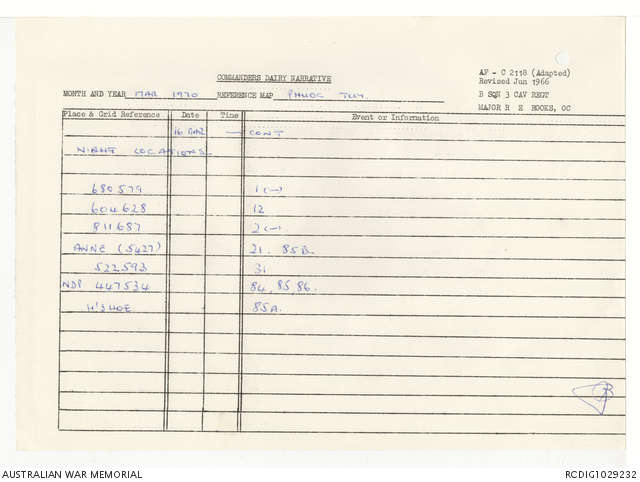 COMMANDERS DAIRY NARRATIVE
AF - C 2118 (Adapted)
Revised Jun 1966
MONTH AND YEAR MAR 1970 REFERENCE MAP PHUOC TUY
B SQN 3 CAV REGT
MAJOR R E ROOKS, OC
Place & Grid Reference Date Time Event or Information
16 MAR — CONT
NIGHT LOCATIONS
680579 1 (-)
604628 12
811687 2 (-)
ANNE (5427) 21. 85B.
522593 31
NDP 447534 84, 85, 86.
H'SHOE 85A.
AUSTRALIAN WAR MEMORIAL
RCDIG1029232